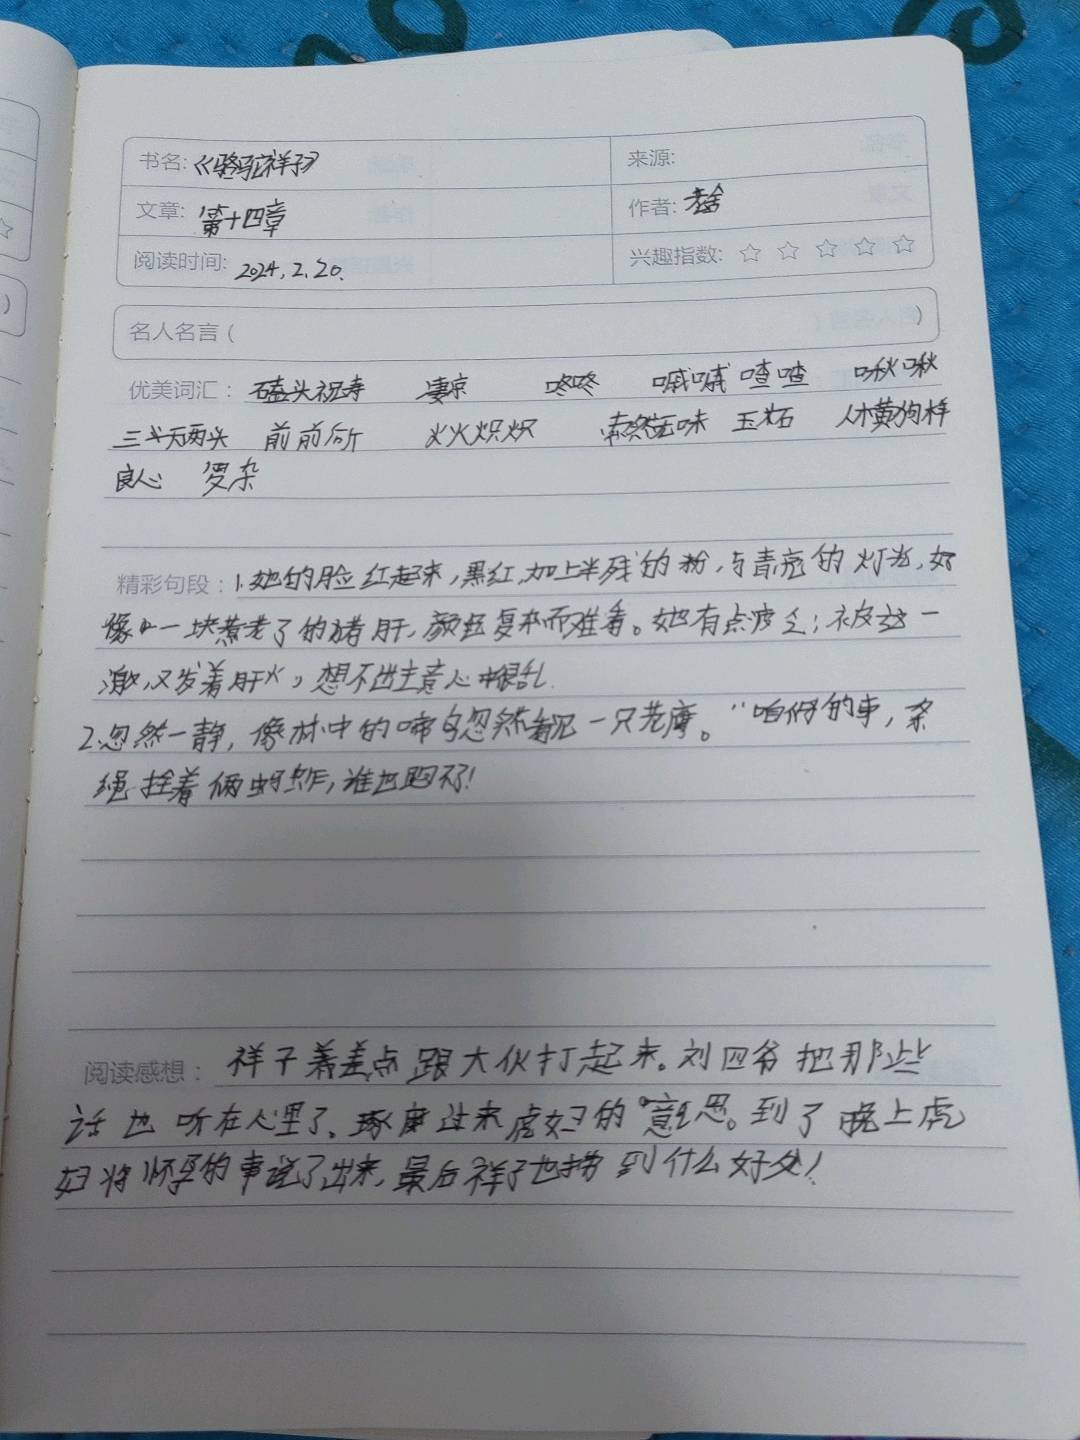 书名:《骆驼祥子》 来源:
文章: 第十四章 作者: 老舍
阅读时间: 2024.2.20. 兴趣指数: ☆ ☆ ☆ ☆ ☆
名人名言 ( )
优美词汇: 磕头祝寿 凄凉 咚咚 嘁嘁喳喳 啾啾
三头两头 前前后后 火火炽炽 索然无味 玉石 人様黄狗样
良心 复杂
精彩句段: 1.她的脸红起来,黑红,加上半残的粉,与青亮的灯光,好
像一块煮老了的猪肝,颜色复杂而难看。她有点疲乏;被这一
激,又发着肝火,想不出主意,心中很乱.
2.忽然一静,像林中的啼鸟忽然看见一只苍鹰。“咱俩的事,条
绳拴着俩蚂蚱,谁也跑不了!
阅读感想: 祥子差点跟大伙打起来。刘四爷把那些
话也听在心里了、琢磨过来虎妞的意思。到了晚上虎
妞将怀孕的事说了出来,最后祥子也捞到什么好处!